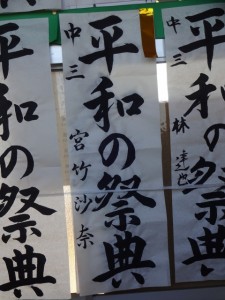 中三 林
平和の祭典
中三 宮竹沙奈
平和の祭典
平和の祭典